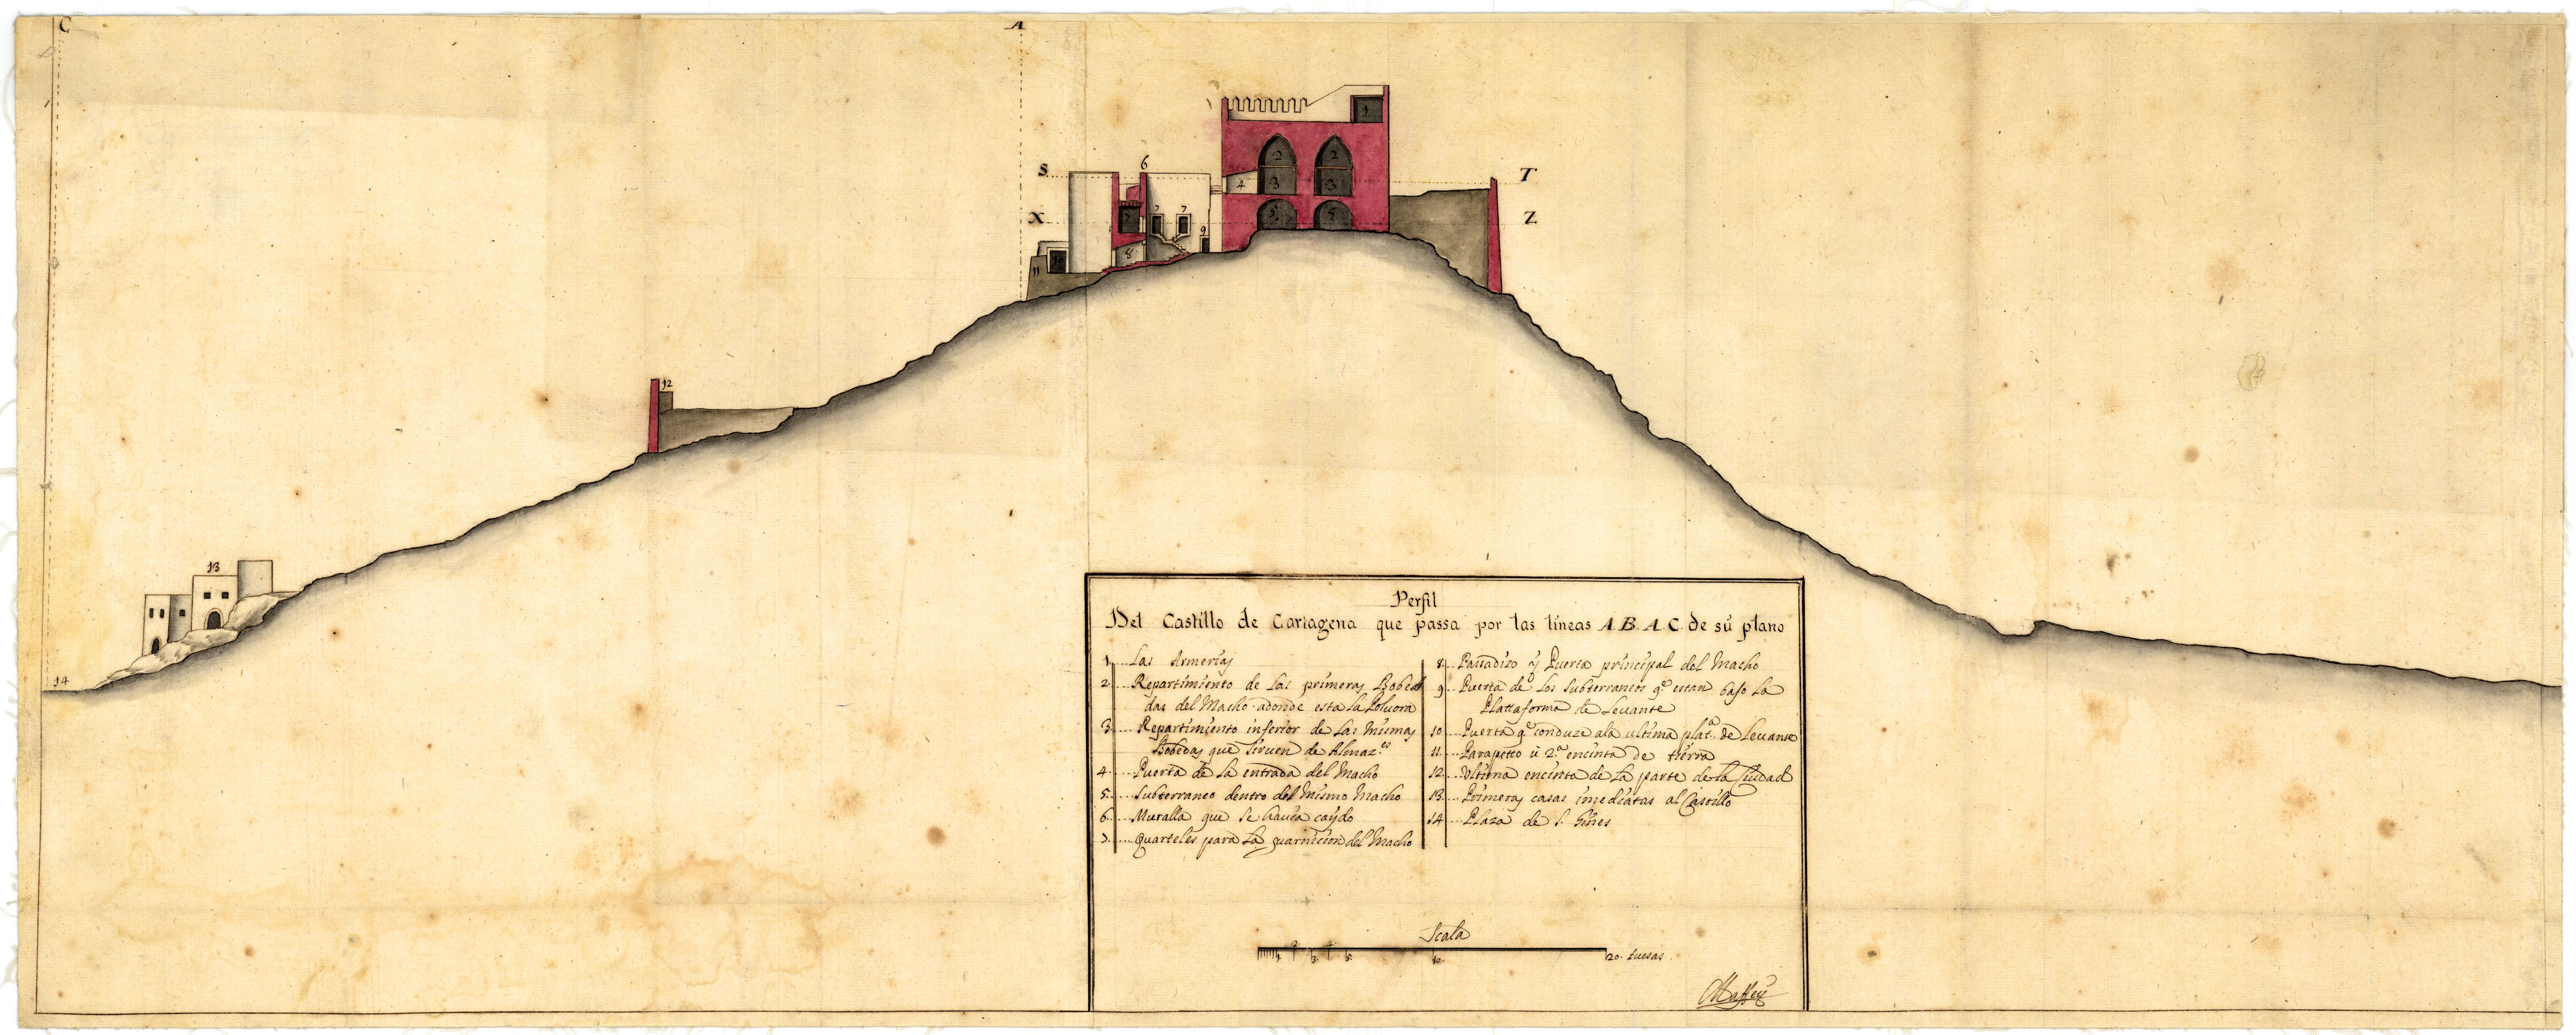 C
A
6
1
2 2
S
4 3 3
T
X
7 7 7
5 5
Z
9
8
10
11
12
13
14
Perfil
Del Castillo de Cartagena que passa por las lineas A.B. A.C. de sú plano
1....Las Armerias
2....Repartimiento de las primeras Bobe
das del Macho adonde esta la Polvora
3....Repartimiento inferior de las mismas
Bobedas que sirven de Almaz.es
4....Puerta de la entrada del Macho
5....Subterraneo dentro del Mismo Macho
6....Muralla que se havia caýdo
7....Quarteles para la guarnicion del Macho
8...Passadizo ÿ Puerta principal del Macho
9...Puerta de los Subterraneos q.e estan baso la
Plattaforma de Levante
10...Puerta q.e conduze ala ultima plat.a de Levante
11...Parapetto ù 2.a encinta de tierra
12...Ultima encinta de la parte de la Ciudad
13...Primeras casas imediatas al Castillo
14...Plaza de S. Gines
Scala
1 2 3 4 5 10 20. tuesas
Maffei